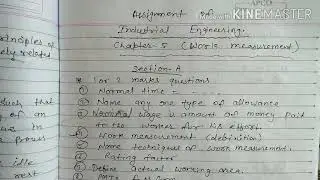 Made with
KINEMASTER
Assignment of
Industrial Engineering.
Chapter-5 (Work measurement)
Section-A
1 or 2 marks questions
① Normal time =
② Name any one type of allowance
③ Nominal wage is amount of money paid
to the worker for his effort.
① Work measurement (definition)
② Name techniques of work measurement.
Rating factor
Define actual working area.
inciples of
ely related
Such that
of an
ve in
e proves
idle
rest